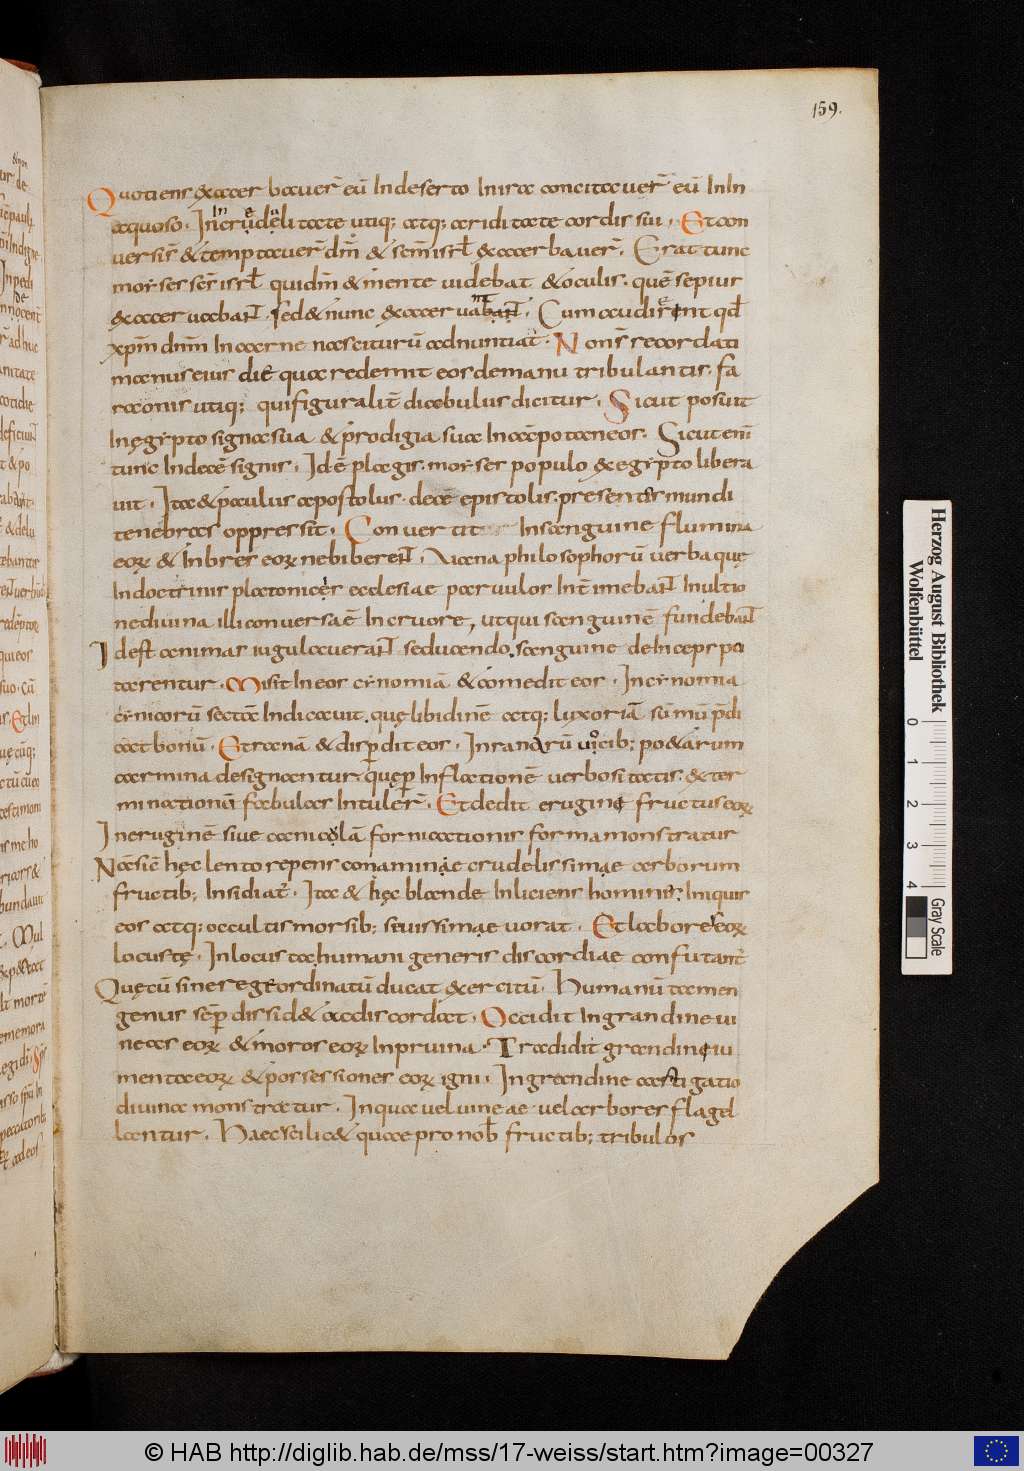 159.
Quotiens exacerbauer̄ eū In deserto In ira concitauer̄ eū In In
aquoso. In incredeli tate utiq; atq; ariditate cordis sui. Et con
uersi sr̄ & temptauer̄ dm̄ & sc̄m isrl̄ & exacerbauer̄. Erat tunc
moyses sc̄m isrl̄ qui dm̄ & mente uidebat & oculis. quē sepius
exaceruabant. sed & nunc exaceruant. Cum audirent qd̄
xp̄m dn̄m In carne nasciturū adnuntiat. Non sr̄ recordati
manus eius diē qua redemit eos de manu tribulantis. fa
raonis utiq; qui figuralit̄ diabulus dicitur. Sicut posuit
In ęgypto signa sua & prodigia sua In campo taneos. Sicut eni
tunc In decē signis. Idē plagis. moyses populo ex egypto libera
uit. Ita & paulus apostolus. decē epistolis. presentis mundi
tenebras oppressit. Conuertit In sanguine flumina
eoꝝ & Inbres eoꝝ ne biberent. Uana philosophorū uerba quę
In doctrinis platonicis ecclesiae paruulos Intimebant In ultio
ne diuina illi conuersa ē In cruore, ut qui sanguinē fundebant
Id est animas iugulauerant seducendo. sanguine deInceps po
tarentur. Misit In eos cynomiā & comedit eos. In cynomia
cynicorū secta Indicauit. quę libidinē atq; luxoriā sūmū p̄di
cat bonū. Et ranā & disp̄dit eos. In ranarū uocib; poetarum
carmina designantur. quę p̄ Inflationē uerbositatis. & ter
minationē fabulas Intuler̄. Et dedit erugine fructus eoꝝ
In eruginē siue canicolā fornicationis forma monstratur
Nā sic hęc lento repens conaminae crudelissimae arborum
fructib; Insidiat̄. Ita & hęc blande Inliciens hominis. Iniquis
eos atq; occultis morsib; seuissimae uorat. Et labores eoꝝ
locustę. In locusta. humani generis discordiae confutant̄
Quę cū sine rege ordinatū ducat exercitū. Humanū tamen
genus sēp dissidet ac discordat. Occidit In grandine ui
neas eoꝝ & moros eoꝝ In pruina. Tradidit grandine iu
menta eoꝝ & possessiones eoꝝ igni. In grandine castigatio
diuina monstratur. In qua uel uineae uel arbores flagel
lantur. Haec scilicet quae pro nob̄ fructib; tribulos
Herzog August Bibliothek
Wolfenbüttel
0 1 2 3 4
Gray Scale
© HAB http://diglib.hab.de/mss/17-weiss/start.htm?image=00327